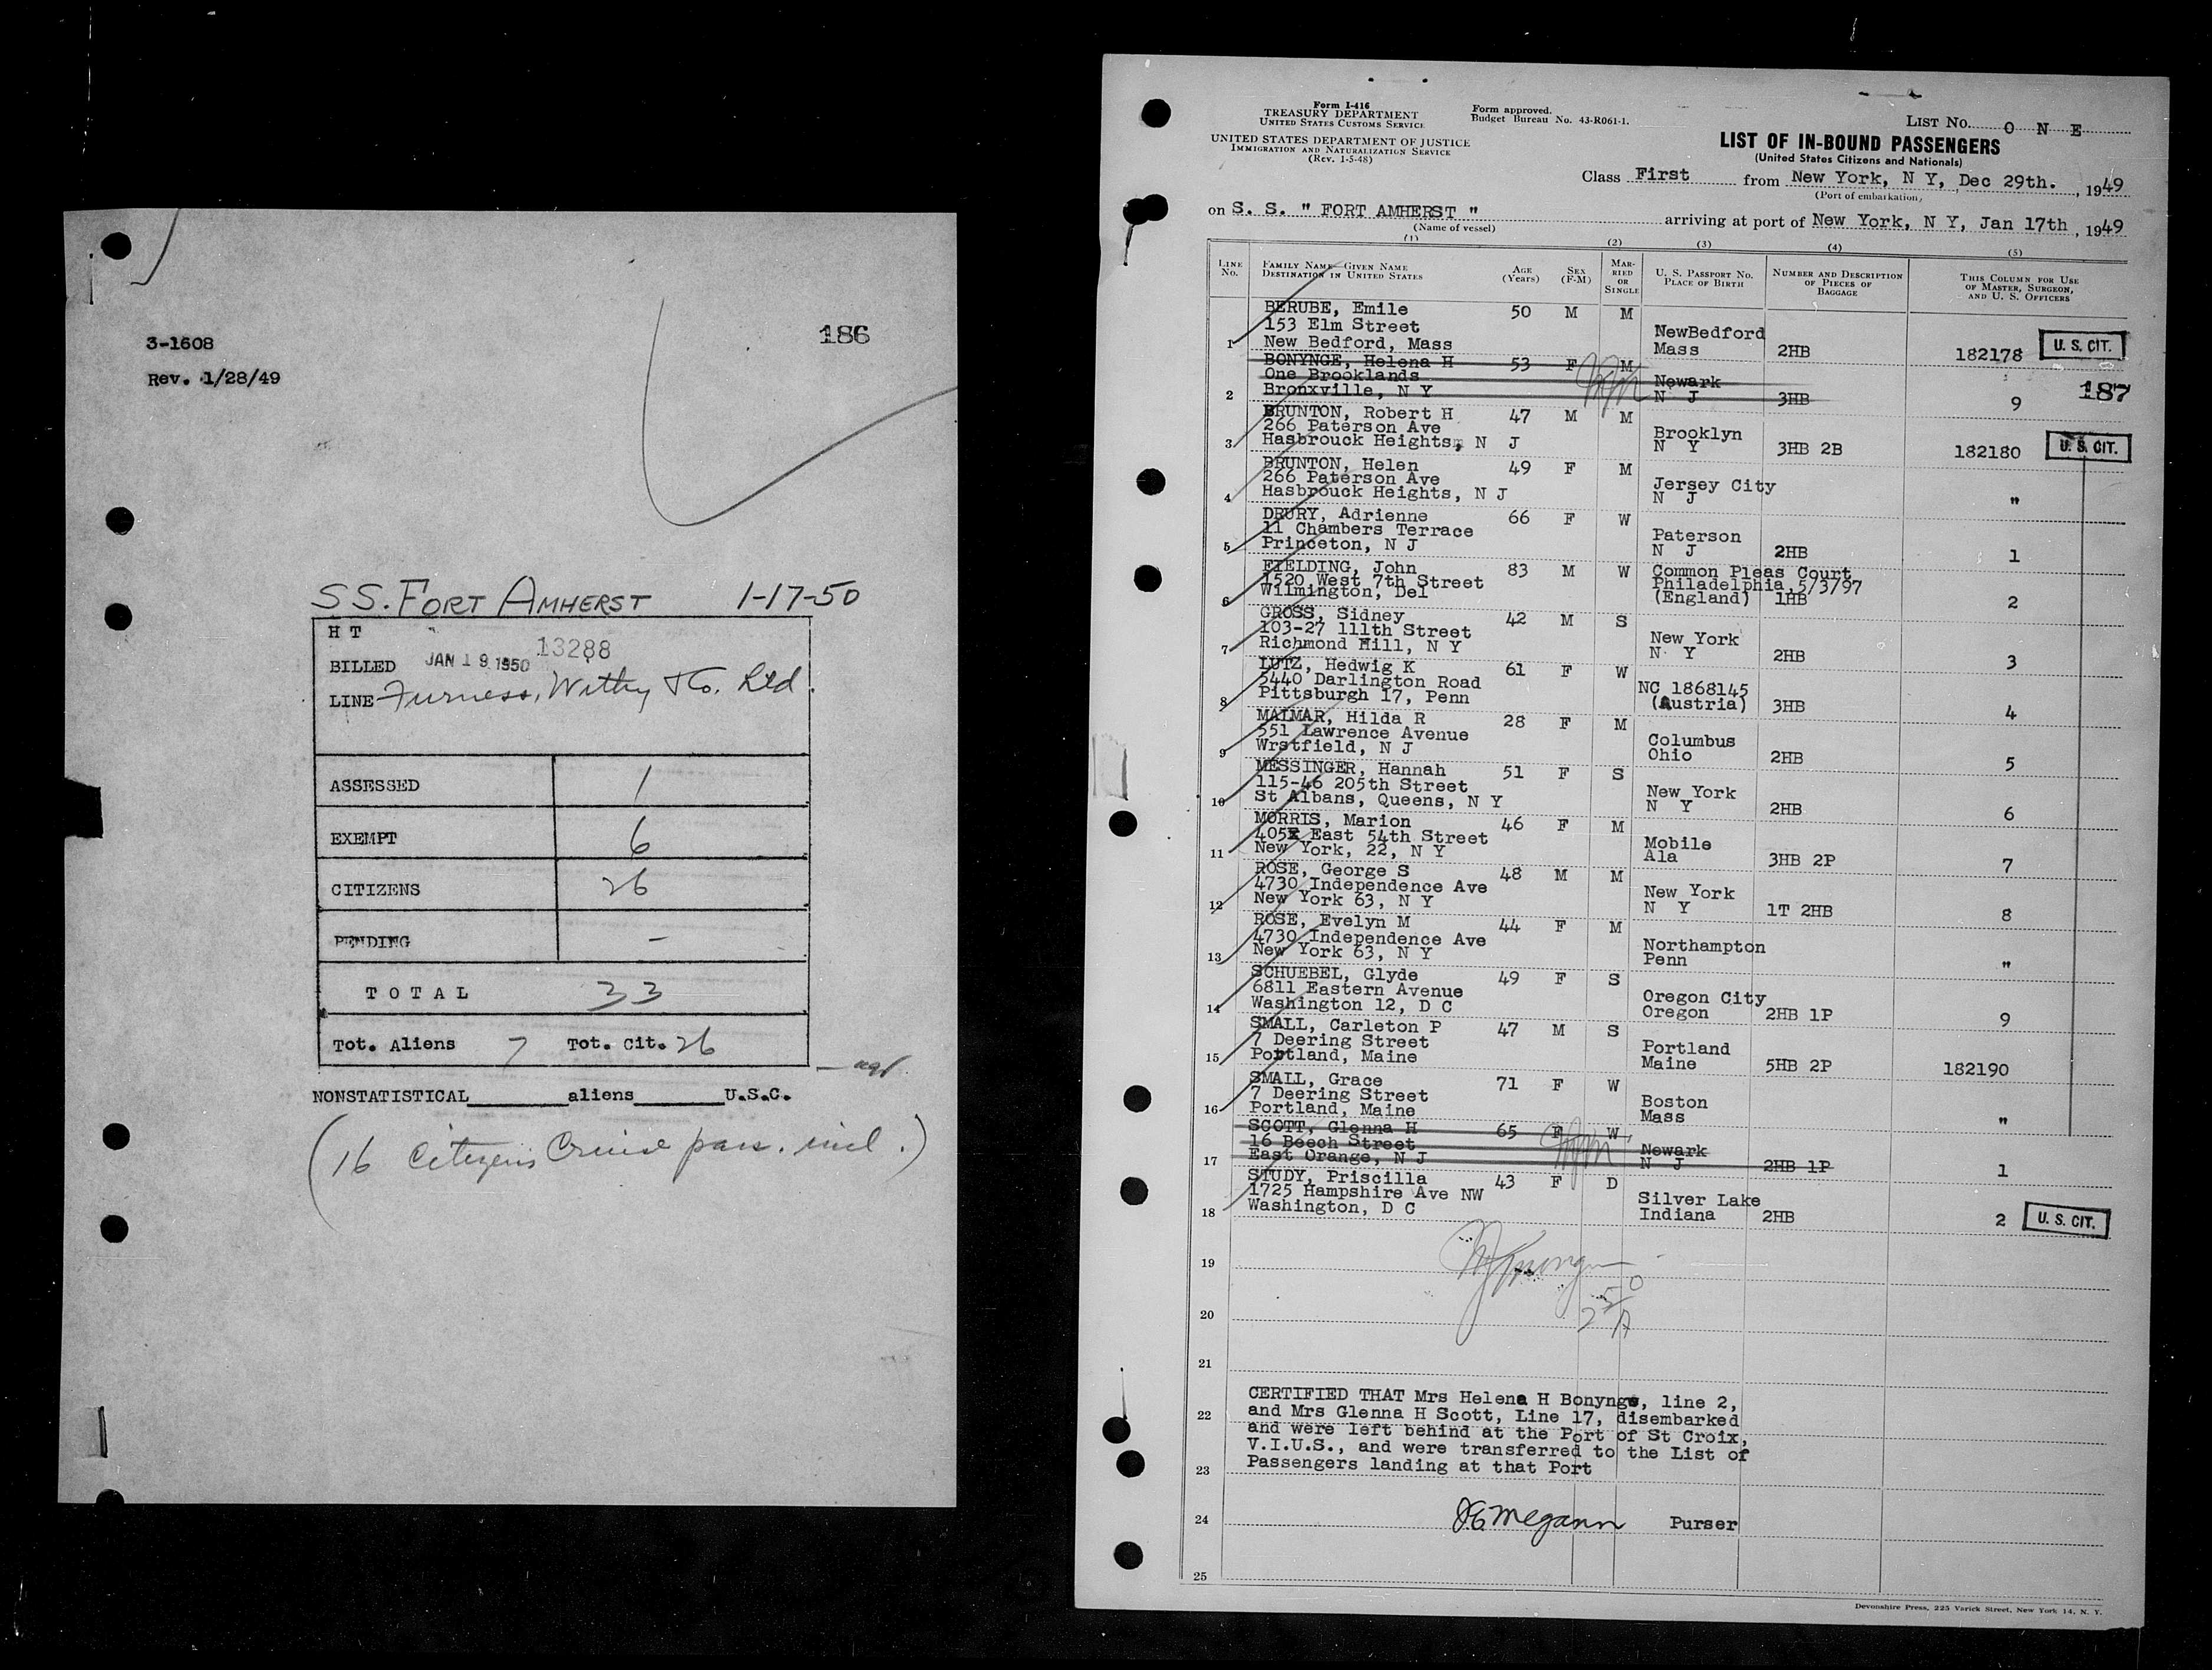 3-1608
Rev. 1/28/49
186
SS. FORT AMHERST 1-17-50
H T
BILLED JAN 19 1950 13288
LINE Furness, Withy & Co. Ltd.
ASSESSED 1
EXEMPT 6
CITIZENS 26
PENDING -
T O T A L 33
Tot. Aliens 7 Tot. Cit. 26
NONSTATISTICAL aliens U.S.C.
(16 Citizens Cruise pass. incl.)
Form I-416
TREASURY DEPARTMENT
UNITED STATES CUSTOMS SERVICE
UNITED STATES DEPARTMENT OF JUSTICE
IMMIGRATION AND NATURALIZATION SERVICE
(Rev. 1-5-48)
Form approved.
Budget Bureau No. 43-R061-1.
LIST NO. O N E
LIST OF IN-BOUND PASSENGERS
(United States Citizens and Nationals)
Class First from New York, N Y, Dec 29th. , 1949
(Port of embarkation)
on S. S. " FORT AMHERST " arriving at port of New York, N Y, Jan 17th , 1949
(Name of vessel)
(1) (2) (3) (4) (5)
LINE NO. FAMILY NAME—GIVEN NAME DESTINATION IN UNITED STATES AGE (Years) SEX (F-M) MARRIED OR SINGLE U. S. PASSPORT NO. PLACE OF BIRTH NUMBER AND DESCRIPTION OF PIECES OF BAGGAGE THIS COLUMN FOR USE OF MASTER, SURGEON, AND U. S. OFFICERS
BERUBE, Emile 50 M M
153 Elm Street NewBedford
1 New Bedford, Mass Mass 2HB 182178 U. S. CIT.
BONYNGE, Helena H 53 F M
One Brooklands Newark 187
2 Bronxville, N Y N J 3HB 9
BRUNTON, Robert H 47 M M
266 Paterson Ave Brooklyn
3 Hasbrouck Heights, N J N Y 3HB 2B 182180 U. S. CIT.
BRUNTON, Helen 49 F M
266 Paterson Ave Jersey City
4 Hasbrouck Heights, N J N J "
DRURY, Adrienne 66 F W
11 Chambers Terrace Paterson
5 Princeton, N J N J 2HB 1
FIELDING, John 83 M W Common Pleas Court
1520 West 7th Street Philadelphia,5/3/97
6 Wilmington, Del (England) 1HB 2
GROSS, Sidney 42 M S
103-27 111th Street New York
7 Richmond Hill, N Y N Y 2HB 3
LUTZ, Hedwig K 61 F W
5440 Darlington Road NC 1868145
8 Pittsburgh 17, Penn (Austria) 3HB 4
MALMAR, Hilda R 28 F M
551 Lawrence Avenue Columbus
9 Wrstfield, N J Ohio 2HB 5
MESSINGER, Hannah 51 F S
115-46 205th Street New York
10 St Albans, Queens, N Y N Y 2HB 6
MORRIS, Marion 46 F M
405 East 54th Street Mobile
11 New York, 22, N Y Ala 3HB 2P 7
ROSE, George S 48 M M
4730 Independence Ave New York
12 New York 63, N Y N Y 1T 2HB 8
ROSE, Evelyn M 44 F M
4730 Independence Ave Northampton
13 New York 63, N Y Penn "
SCHUEBEL, Glyde 49 F S
6811 Eastern Avenue Oregon City
14 Washington 12, D C Oregon 2HB 1P 9
SMALL, Carleton P 47 M S
7 Deering Street Portland
15 Portland, Maine Maine 5HB 2P 182190
SMALL, Grace 71 F W
7 Deering Street Boston
16 Portland, Maine Mass "
SCOTT, Glenna H 65 F W
16 Beech Street Newark
17 East Orange, N J N J 2HB 1P 1
STUDY, Priscilla 43 F D
1725 Hampshire Ave NW Silver Lake
18 Washington, D C Indiana 2HB 2 U. S. CIT.
19
20
21
CERTIFIED THAT Mrs Helena H Bonynge, line 2,
22 and Mrs Glenna H Scott, Line 17, disembarked
and were left behind at the Port of St Croix,
V.I.U.S., and were transferred to the List of
23 Passengers landing at that Port
24 JE Megann Purser
25
Devonshire Press, 225 Varick Street, New York 14, N. Y.